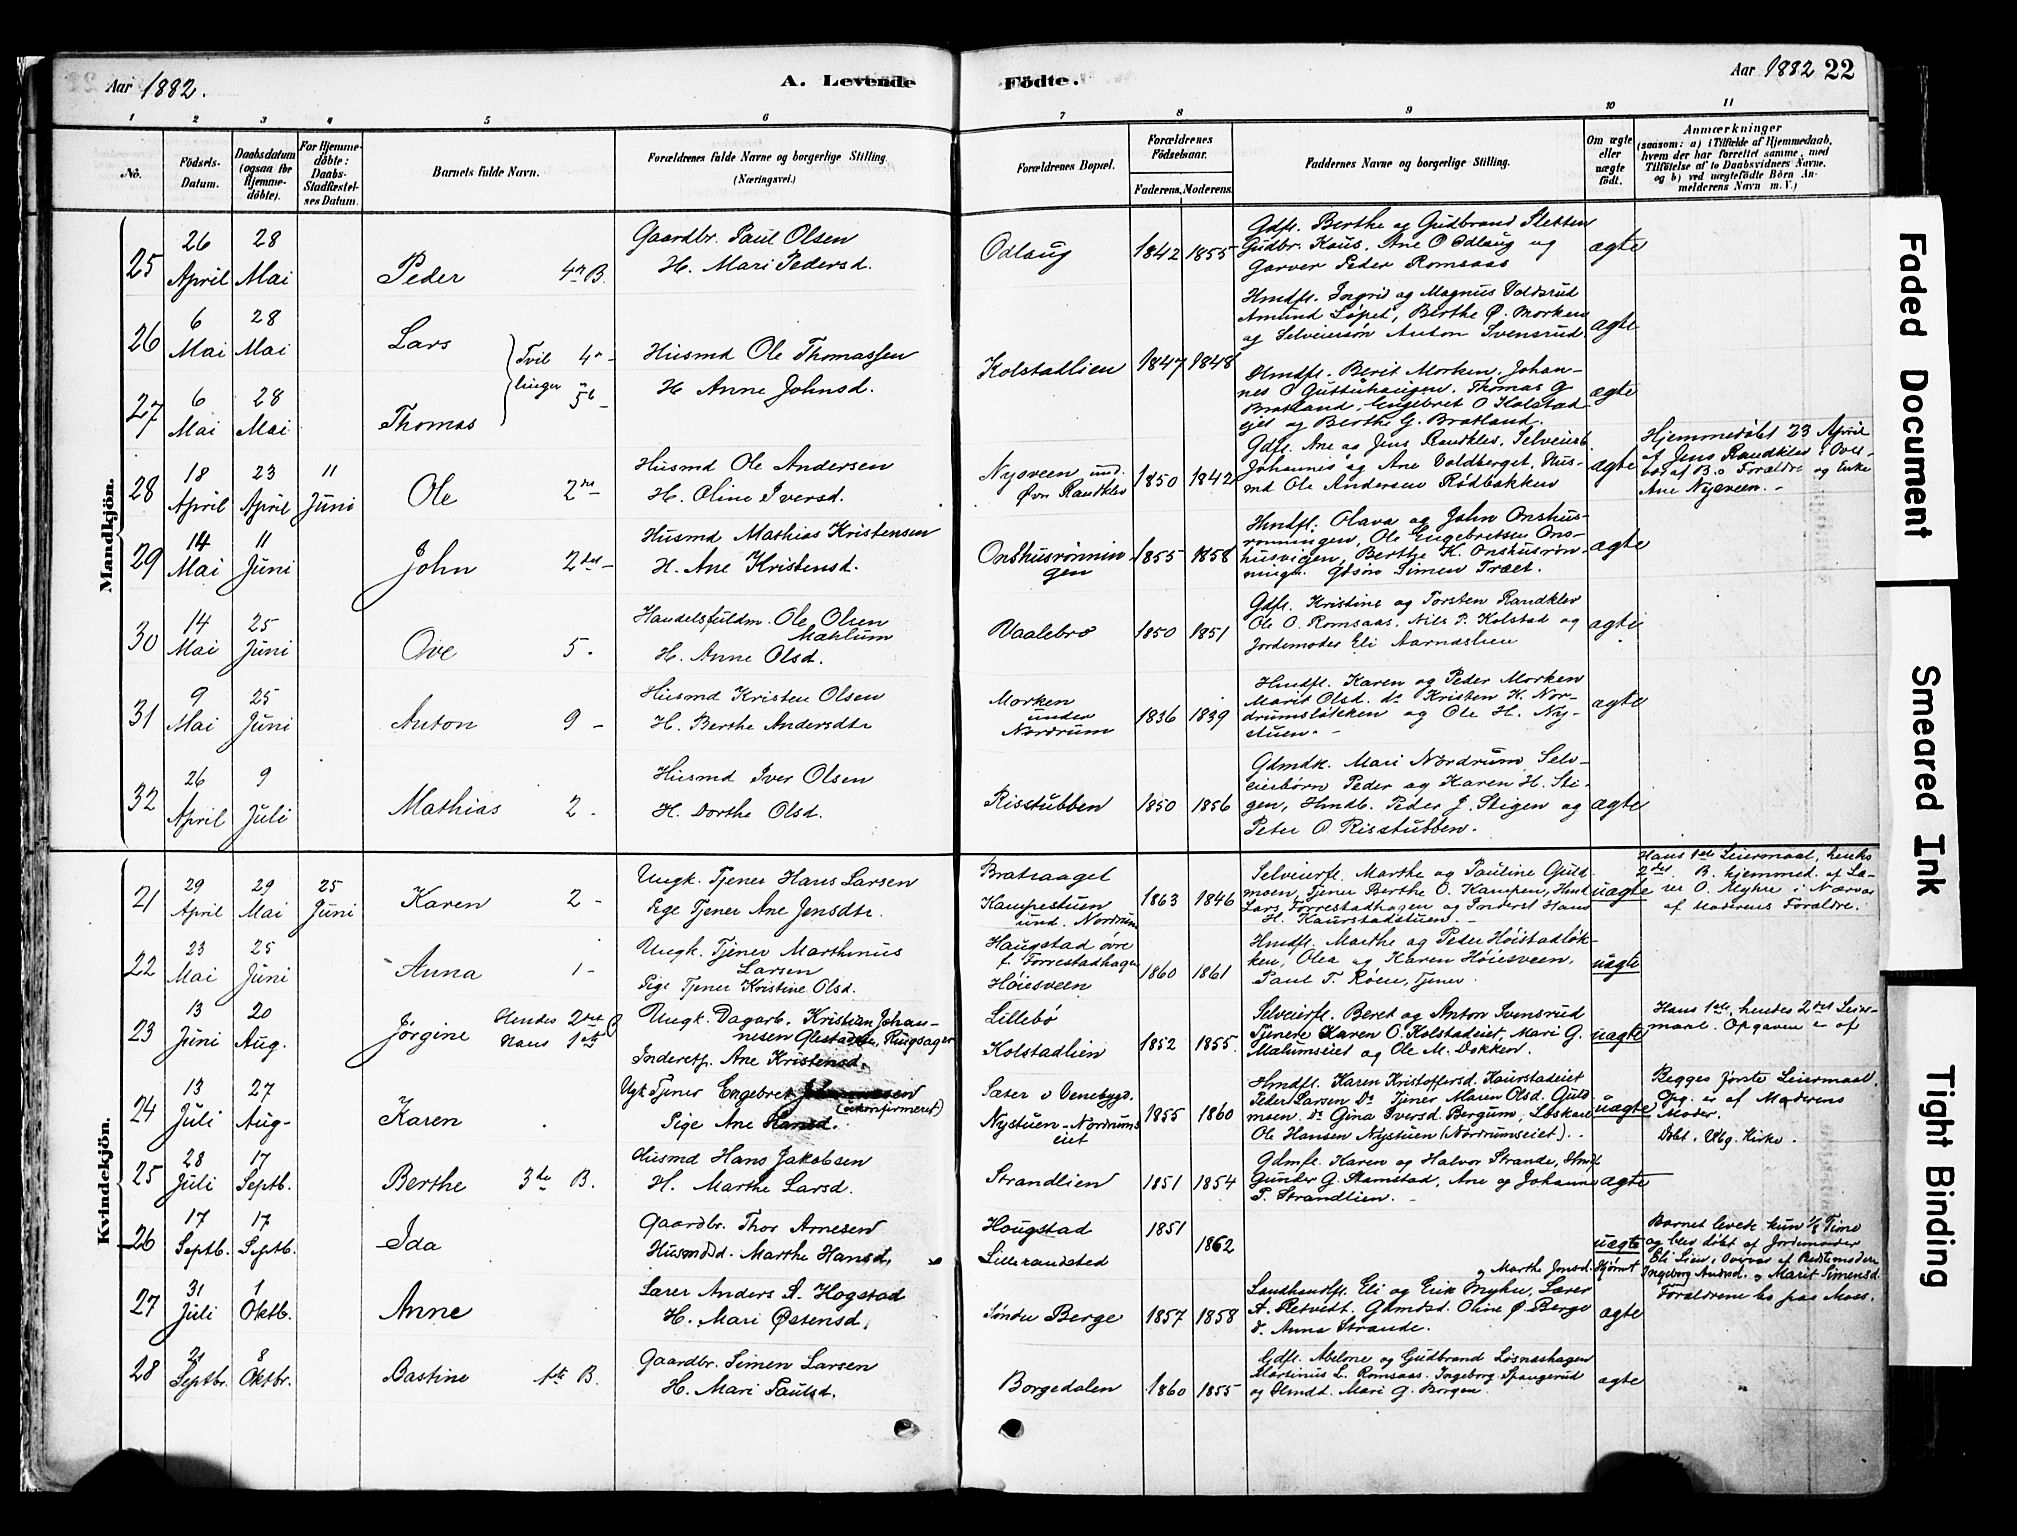 Aar 1882.
A. Levende Födte.
Aar 1882 22
1 2 3 4 5 6 7 8 9 10 11
No.
Födsels-Datum.
Daabsdatum (ogsaa for Hjemmedöbte).
For Hjemmedöbte: Daabs-Stadfæstelses Datum.
Barnets fulde Navn.
Forældrenes fulde Navne og borgerlige Stilling. (Næringsvei.)
Forældrenes Bopæl.
Forældrenes Födselsaar.
Faderens. Moderens.
Faddernes Navne og borgerlige Stilling.
Om ægte eller uægte födt.
Anmærkninger
(saasom: a) i Tilfælde af Hjemmedaab, hvem der har forrettet samme, med Tilföielse af to Daabsvidners Navne, og b) ved uægtefödte Börn Anmelderens Navn m. V.)
Mandkjön.
25 26 April 28 Mai Peder 4 B. Gaardbr. Paul Olsen
H. Mari Pedersd. Odlaug 1842 1855
Gdfl. Berthe og Gudbrand Sletten
Gudbr. Kaus, Ane O Odlaug og
Garver Peder Romsaas ægte
26 6 Mai 28 Mai Lars Tvillinger 4
27 6 Mai 28 Mai Thomas 5
Husmd Ole Thomassen
H Anne Johnsd. Kolstadlien 1847 1848
Hmdfl. Ingrid og Magnus Voldsrud
Amund Løpet, Berthe Ø. Morken
og Selveiersøn Anton Svensrud. ægte
Hmdfl. Berit Morken, Johannes O Guttuhaugen. Thomas G
Bratland, Engebret O Kolstadejet og Berthe G. Bratland. ægte
28 18 April 23 April 11 Juni Ole 2
Husmd Ole Andersen
H. Oline Iversd. Nysveen und.
Øvr Randklev 1850 1842
Gdfl. Ane og Jens Randklev, Selveierb.
Johannes og Ane Voldberget, Husmd Ole Andersen Rødbakken ægte
Hjemmedøbt 23 April
af Jens Randklev i Overv. af B.s Forældre og Enke
Ane Nysveen. -
29 14 Mai 11 Juni John 2
Husmd Mathias Kristensen
H. Ane Kristensd. Onshusrønningen 1855 1858
Hmdfl. Olava og John Onshusrønningen, Ole Engebretsen Onshusvigen, Berthe K. Onshusrønningen. Gdsøn Simen Træet. ægte
30 14 Mai 25 Juni Ove 5.
Handelsfuldm. Ole Olsen
Mæhlum
H. Anne Olsd. Vaalebro 1850 1851
Gdfl. Kristine og Torsten Randklev
Ole O. Romsaas, Nils P. Kolstad og
Jordemoder Eli Aarnæslien ægte
31 9 Mai 25 Juni Anton 9 -
Husmd Kristen Olsen
H. Berthe Andersdtr Morken
under
Nordrum 1836 1839
Hmdfl. Karen og Peder Morken
Marit Olsd. ds Kristen H. Nordrumsløkken og Ole H. Nystuen. ægte
32 26 April 9 Juli Mathias 2 -
Husmd Iver Olsen
H. Dorthe Olsd. Risstubben 1850 1856
Gdmdk. Mari Nordrum, Selveierbørn Peder og Karen H. Stigen, Hmdb. Peder J. Stigen og
Peter O. Risstubben. ægte
Kvindekjön.
21 29 April 29 Mai 25 Juni Karen 2 -
Ungk. Tjener Hans Larsen
Pige Tjener Ane Jensdtr. Bratraaget
Kampestuen
und. Nordrum 1863 1846
Selveierfl. Marthe og Pauline Guldmoen, Tjener Berthe O. Kampen, Hmd
Lars Forrestadhagen og Inderst Hans
H. Kaurstadstuen. - uægte
Hans 1ste Leiermaal, hendes
2det B. hjemmed. af Lærer O. Myhre i Nærvær
af Moderens Forældre.
22 23 Mai 25 Juni Anna 1 -
Ungk. Tjener Marthinus
Larsen
Pige Tjener Kristine Olsd. Haugstad øvre
f. Forrestadhagen
Høiesveen 1860 1861
Hmdfl. Marthe og Peder Høistadløkken, Olea og Karen Høiesveen,
Paul T. Røen, Tjener uægte
23 13 Juni 20 Aug. Jørgine Hendes 2det
Hans 1ste B
Ungk. Dagarb. Kristian Johannesen Ringsager
Inderstp. Ane Kristensd. Lillebø
Kolstadlien 1852 1855.
Selveierfl. Beret og Anton Svensrud
Tjenere Karen O. Kolstadeiet, Mari G.
Mælumseiet og Ole M. Dokken. uægte
Hans 1ste, hendes 2det Leiermaal. Opgaven er af
24 13 Juli 27 Aug. Karen
Ugk Tjener Engebret
(ukonfirmeret)
Pige Ane Hansd. Sæter i Venebygd.
Nystuen-Nordrumseiet 1855 1860
Hmdfl. Karen Kristoffersd. Kaurstadeiet
Peter Larsen Ds Tjener Maren Olsd. Guldmoen. Ds Gina Iversd. Bergum, Løskarl
Ole Hansen Nystuen (Nordrumseiet). - uægte
Begges første Leiermaal,
Opg. er af Moderens
Moder.
Døbt i Vbg. Kirke.
25 28 Juli 17 Septb. Berthe 3de B.
Husmd Hans Jakobsen
H. Marthe Larsd. Strandlien 1851 1854
Gdmfl. Karen og Halvor Strande, Hmdf
Gunder G. Stamstad, Ane og Johanne
P. Strandlien. - ægte
26 17 Septb. 17 Septb. Ida
Gaardbr. Thor Arnesen
Husmdsd. Marthe Hansd. Hougstad
Lillerandsted 1851 1862 uægte
Barnet levede kun ½ Time
og blev døbt af Jordemoder
Eli Lien, Overvær af Bedstemødre
Ingeborg Andsd. og Marit Simensd.
Forældrene bo paa Moes.
27 31 Juli 1 Oktb. Anne
Lærer Anders A. Hogstad
H. Mari Østensd. Søndre Berge 1857 1858
og Marthe Jonsd. Hjørnt
Landhandlfl. Eli og Erik Myhre, Lærer
A. Retvedt. Gdmdsd. Oline Ø. Berge
d. Anna Strande. ægte
28 21 Septbr. 8 Oktbr. Bastine 1ste B.
Gaardbr. Simen Larsen
H. Mari Paulsd. Borgedalen 1860 1855
Gdfl. Abelone og Gudbrand Løsneshagen
Martinus L. Romsaas. Ingeborg Spangerud
og Hmdd. Mari G. Borgen ægte
Faded Document
Smeared Ink
Tight Binding